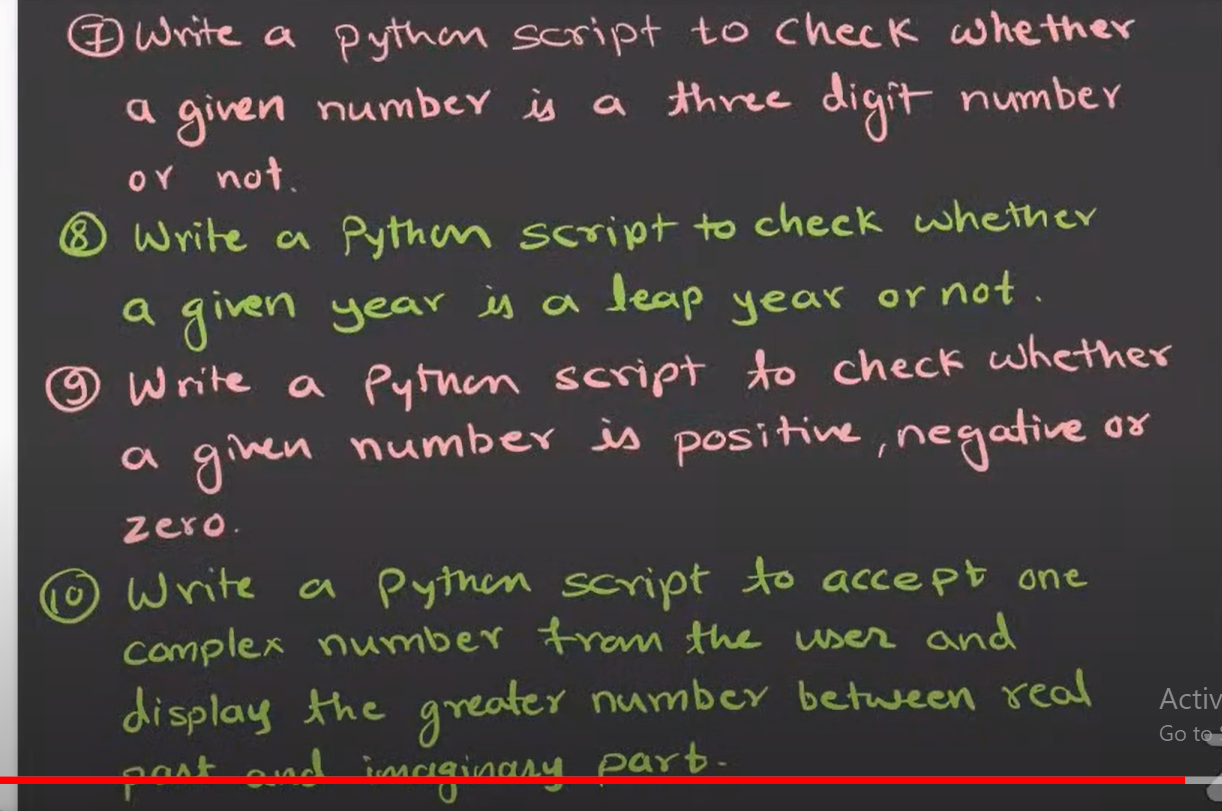 ⑦ Write a python script to check whether
a given number is a three digit number
or not.
⑧ Write a Python script to check whether
a given year is a leap year or not.
⑨ Write a Python script to check whether
a given number is positive, negative or
zero.
⑩ Write a Python script to accept one
complex number from the user and
display the greater number between real
part and imaginary part.
Activ
Go to